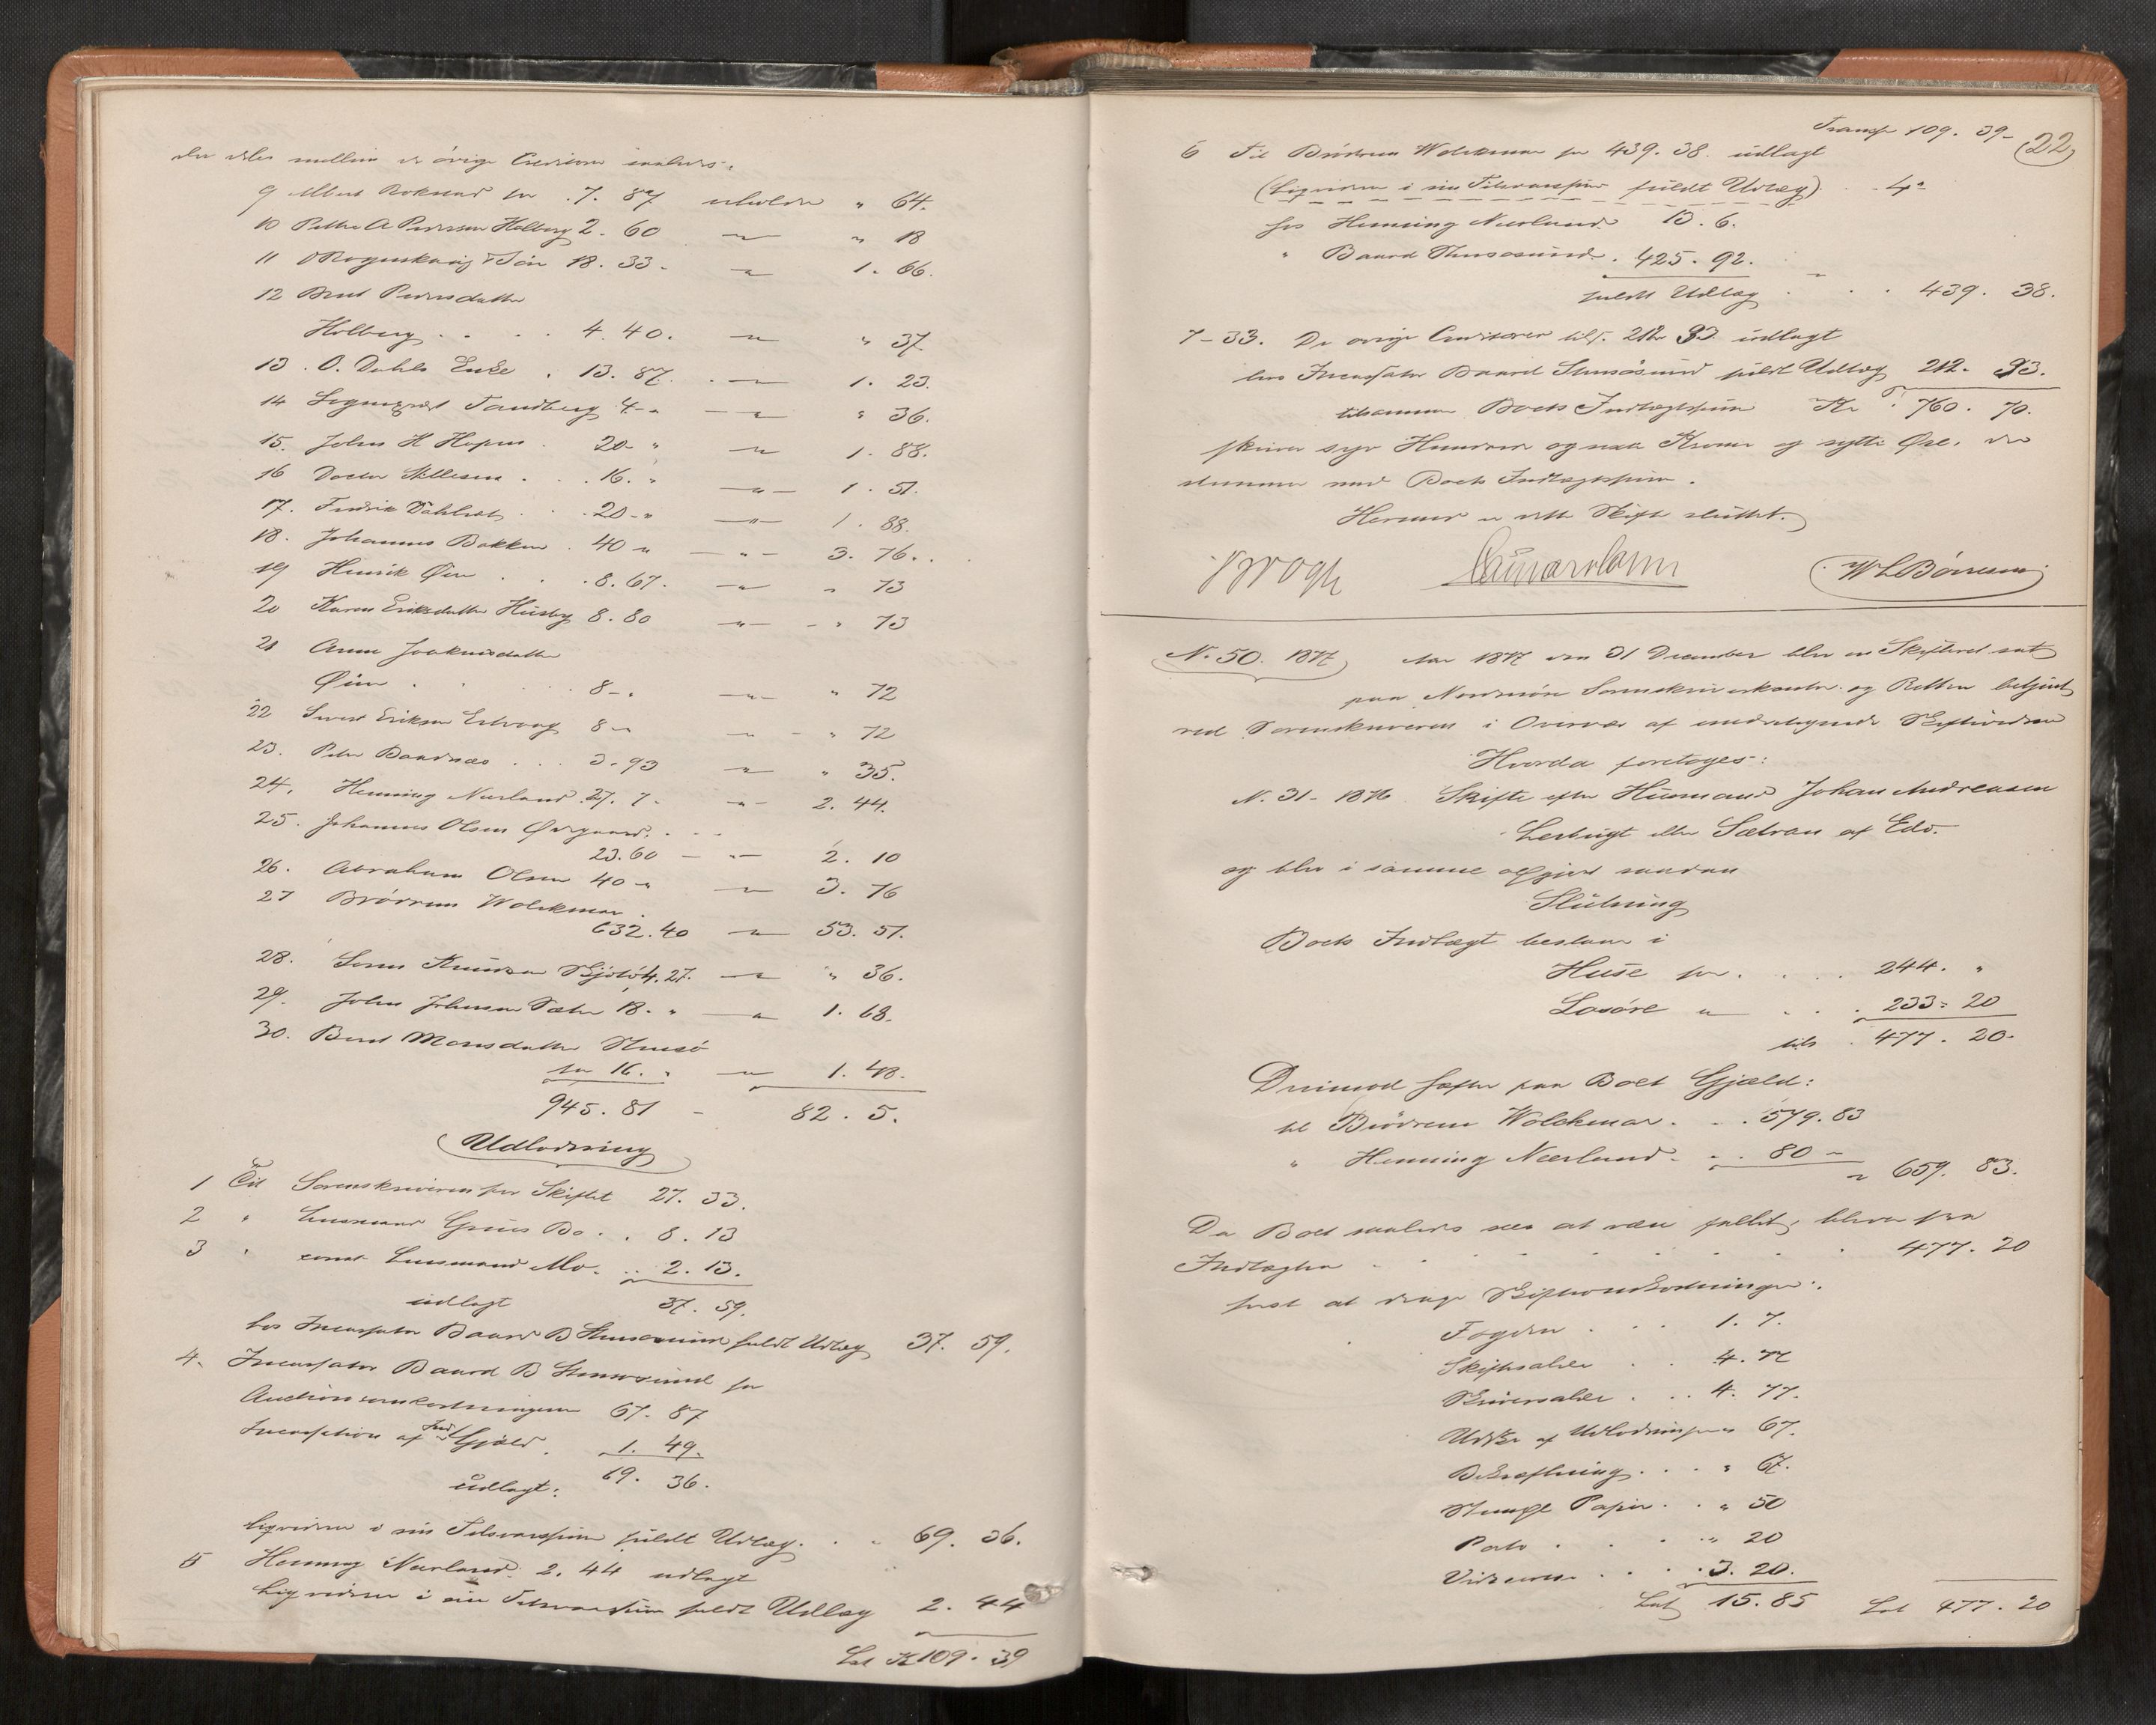 der deles mellem de øvrige Creditorer saaledes:
9 Albert Roksvaag for 7. 87 erholder " 64.
10 Petter A Pedersen Holberg 2. 60 — " — " 18
11 O Rogenskaug & Søn 18. 33. — " — 1. 66.
12 Berit Pedersdatter
Holberg . . . . 4. 40. — " — " 37.
13. O. Dahls Enke . 13. 87. — " — 1. 23.
14 Sogneprest Sandberg 4 - " — " — " 36.
15. John H Hopen . 20 - " — " — 1. 88.
16 Doctor Stillesen . . 16. " — " — 1. 51.
17. Fredrik Dahlseth . . 20 - " — " — 1. 88.
18. Johannes Bakken . 40 " — " — 3. 76.
19 Henrik Øien . . . 8. 67. — " — " 73
20 Karen Eriksdatter Husby 8. 80 — " — " 73
21 Anne Joakimsdatter
Øien . . . . 8 - " — " — " 72
22 Sivert Eriksen Ertvaag 8 - " — " — " 72
23. Peter Baardnæs . . . 3. 93 — " — " 35.
24. Henning Neerland 27. 7 - — " — 2. 44.
25. Johannes Olsen Ødegaard. . .
23. 60 — " — 2. 10
26. Abraham Olsen 40 - " — " — 3. 76
27 Brødrene Wolckmar .
632. 40 — " — 53. 51.
28. Søren Knudsen 4. 27. — " — " 36.
29. John Johnsen Sæter 18. " — " — 1. 68.
30. Berit Monsdatter Stensø
for 16. " — " — 1. 48.
945. 81 - 82. 5.
Udlodning
1 Til Sorenskriveren for Skiftet 27. 33.
2 " Lensmand Bo . . 8. 13
3 " const Lensmand Mo . . 2. 13.
udlagt 37. 59.
hos Incassator Baard B Stensøsund fuldt Udlæg 37. 59.
4. Incassator Baard B Stensøsund for
Auctionsomkostningerne 67. 87
Incassation af Ind Gjæld . 1. 49.
udlagt: 69. 36.
Liqvideres i sin Tilsvarssum fuldt Udlæg . . . 69. 36.
5 Henning Neerland 2. 44 udlagt
Liqvideres i sin Tilsvarssum fuldt Udlæg 2. 44
Lat Kr 109. 39
Transp 109. 39 -
22
6 Til Brødrene Wolckmar for 439. 38. udlagt
(Liqvideres i sin Tilsvarssum fuldt Udlæg) . . 4 "
hos Henning Neerland 13. 6.
" Baard Stensøsund . 425. 92.
fuldt Udlæg . . . 439. 38.
7-33. De øvrige Creditorer tils. 212 93 udlagt
hos Incassator Baard Stensøsund fuldt Udlæg 212. 93.
tilsammen Boets Indtægtssum Kr 760. 70.
skriver syv Hundrede og Kroner og sytti Øre, der
stemmer med Boets Indtægtssum.
Hermed er dette Skifte sluttet.
Krogh W L Børresen
N. 50. 1877 Aar 1877 den 31 December blev en Skifteret sat
paa Nordmøre Sorenskriverkontor og Retten betjent
ved Sorenskriveren i Overvær af undertegnede Skiftevidner
Hvorda foretoges:
N. 31 - 1876 Skifte efter Husmand Johan Andreasen
Leerbugt eller Sætran af Edø.
og blev i samme afgivet saadan
Slutning
Boets Indtægt bestaar i
Huse for . . . . 244. "
Løsøre " . . . 233: 20
tils . 477. 20.
Derimod hefter paa Boet Gjæld:
til Brødrene Wolckmar . . . 579. 83
" Henning Neerland . . . 80 -
" 659. 83.
Da Boet saaledes sees at være fallit, bliver fra
Indtægten . . . . . . . 477. 20
først at drage Skifteomkostninger:
Fogden . . . 1. 7.
Skiftesalær . . 4. 77
Skriversalær . . . 4. 77.
Udskr af Udlodningen " 67.
Bekræftning . . . " 67.
Stempl Papir . . " 50
Porto . . . . " 20
Vidnerne . . . . 3. 20.
Lat 15. 85 Lat 477. 20